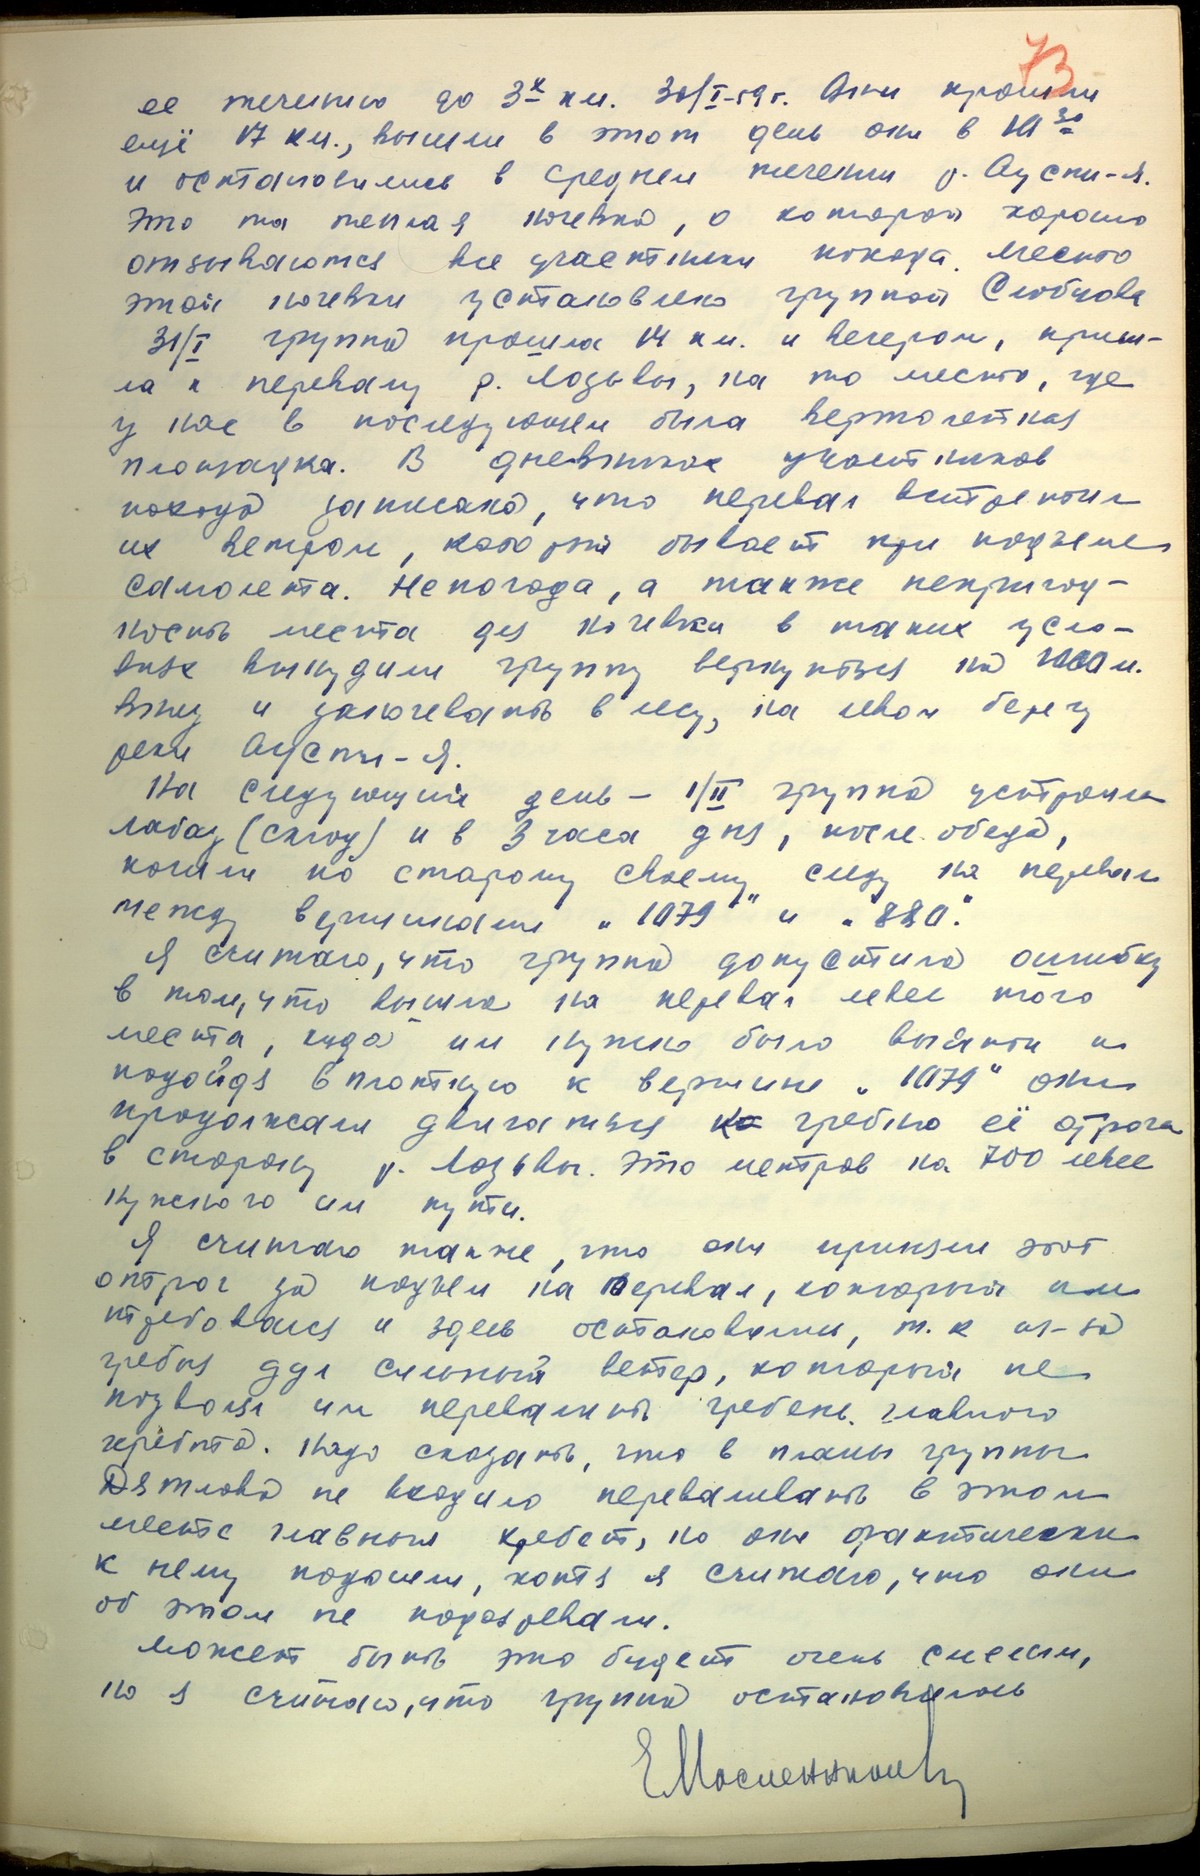 73
ее течению до 3х км. 30/I-59г. Они прошли
ещё 17 км., вышли в этот день они в 10 30
и остановились в среднем течении р. Ауспи-я.
Это та теплая ночевка, о которой хорошо
отзываются все участники похода. Место
этой ночевки установлено группой Слобцова
31/I группа прошла 14 км. и вечером, приш-
ла к перевалу р. Лозьвы, на то место, где
у нас в последующем была вертолетная
площадка. В дневниках участников
похода записано, что перевал встретил
их ветром, который бывает при подъеме
самолета. Непогода, а также непригод-
ность места для ночевки в таких усло-
виях вынудили группу вернуться на м.
вниз и заночевать в лесу, на левом берегу
реки Ауспи-я.
На следующий день – 1/II группа устроила
лабаз (склад) и в 3 часа дня, после обеда,
пошли по старому своему следу на перевал
между вершинами „1079" и „880".
Я считаю, что группа допустила ошибку
в том, что вышла на перевал левее того
места, куда им нужно было выйти и
подойдя вплотную к вершине „1079" они
продолжали двигаться по гребню её отрога
в сторону р. Лозьвы. Это метров на 700 левее
нужного им пути.
Я считаю также, что они приняли этот
отрог за подъем на перевал, который им
требовался и здесь остановились, т.к из-за
гребня дул сильный ветер, который не
позволял им перевалить гребень главного
хребта. Надо сказать, что в планы группы
Дятлова не входило переваливать в этом
месте главный хребет, но они фактически
к нему подошли, хотя я считаю, что они
об этом не подозревали.
Может быть это будет очень смелым,
но я считаю, что группа остановилась
Е Масленников